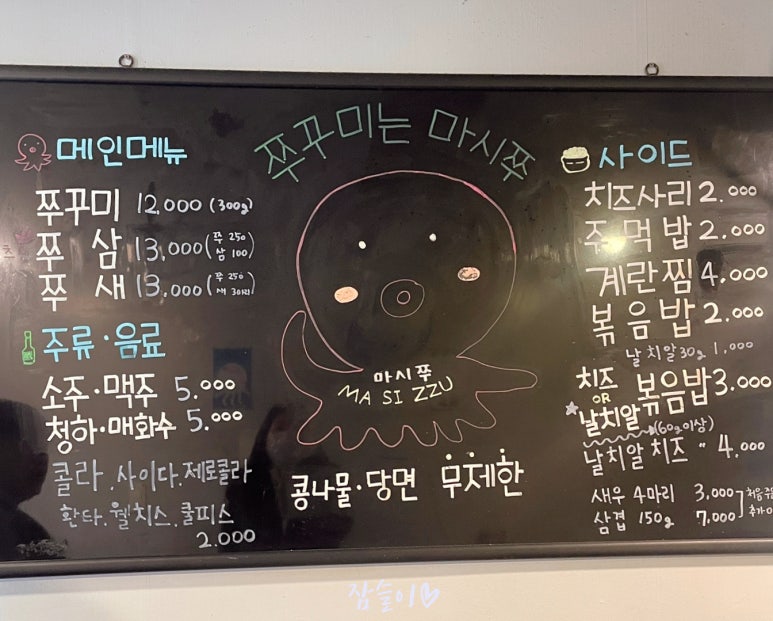 쭈꾸미는 마시쭈
메인메뉴
쭈꾸미 12,000 (300g)
쭈 삼 13,000 (쭈 250 삼 100)
쭈 새 13,000 (쭈 250 새 3마리)
주류·음료
소주·맥주 5.000
청하·매화수 5.000
콜라.사이다.제로콜라
환타.웰치스.쿨피스
2.000
마시쭈
MA SI ZZU
콩나물·당면 무제한
사이드
치즈사리 2.000
주먹밥 2.000
계란찜 4,000
볶음밥 2.000
날치알 30g 1,000
치즈 OR 날치알 볶음밥 3.000
(60g이상)
날치알 치즈 " 4,000
새우 4마리 3,000
삼겹 150g 7,000
잠슬이♡